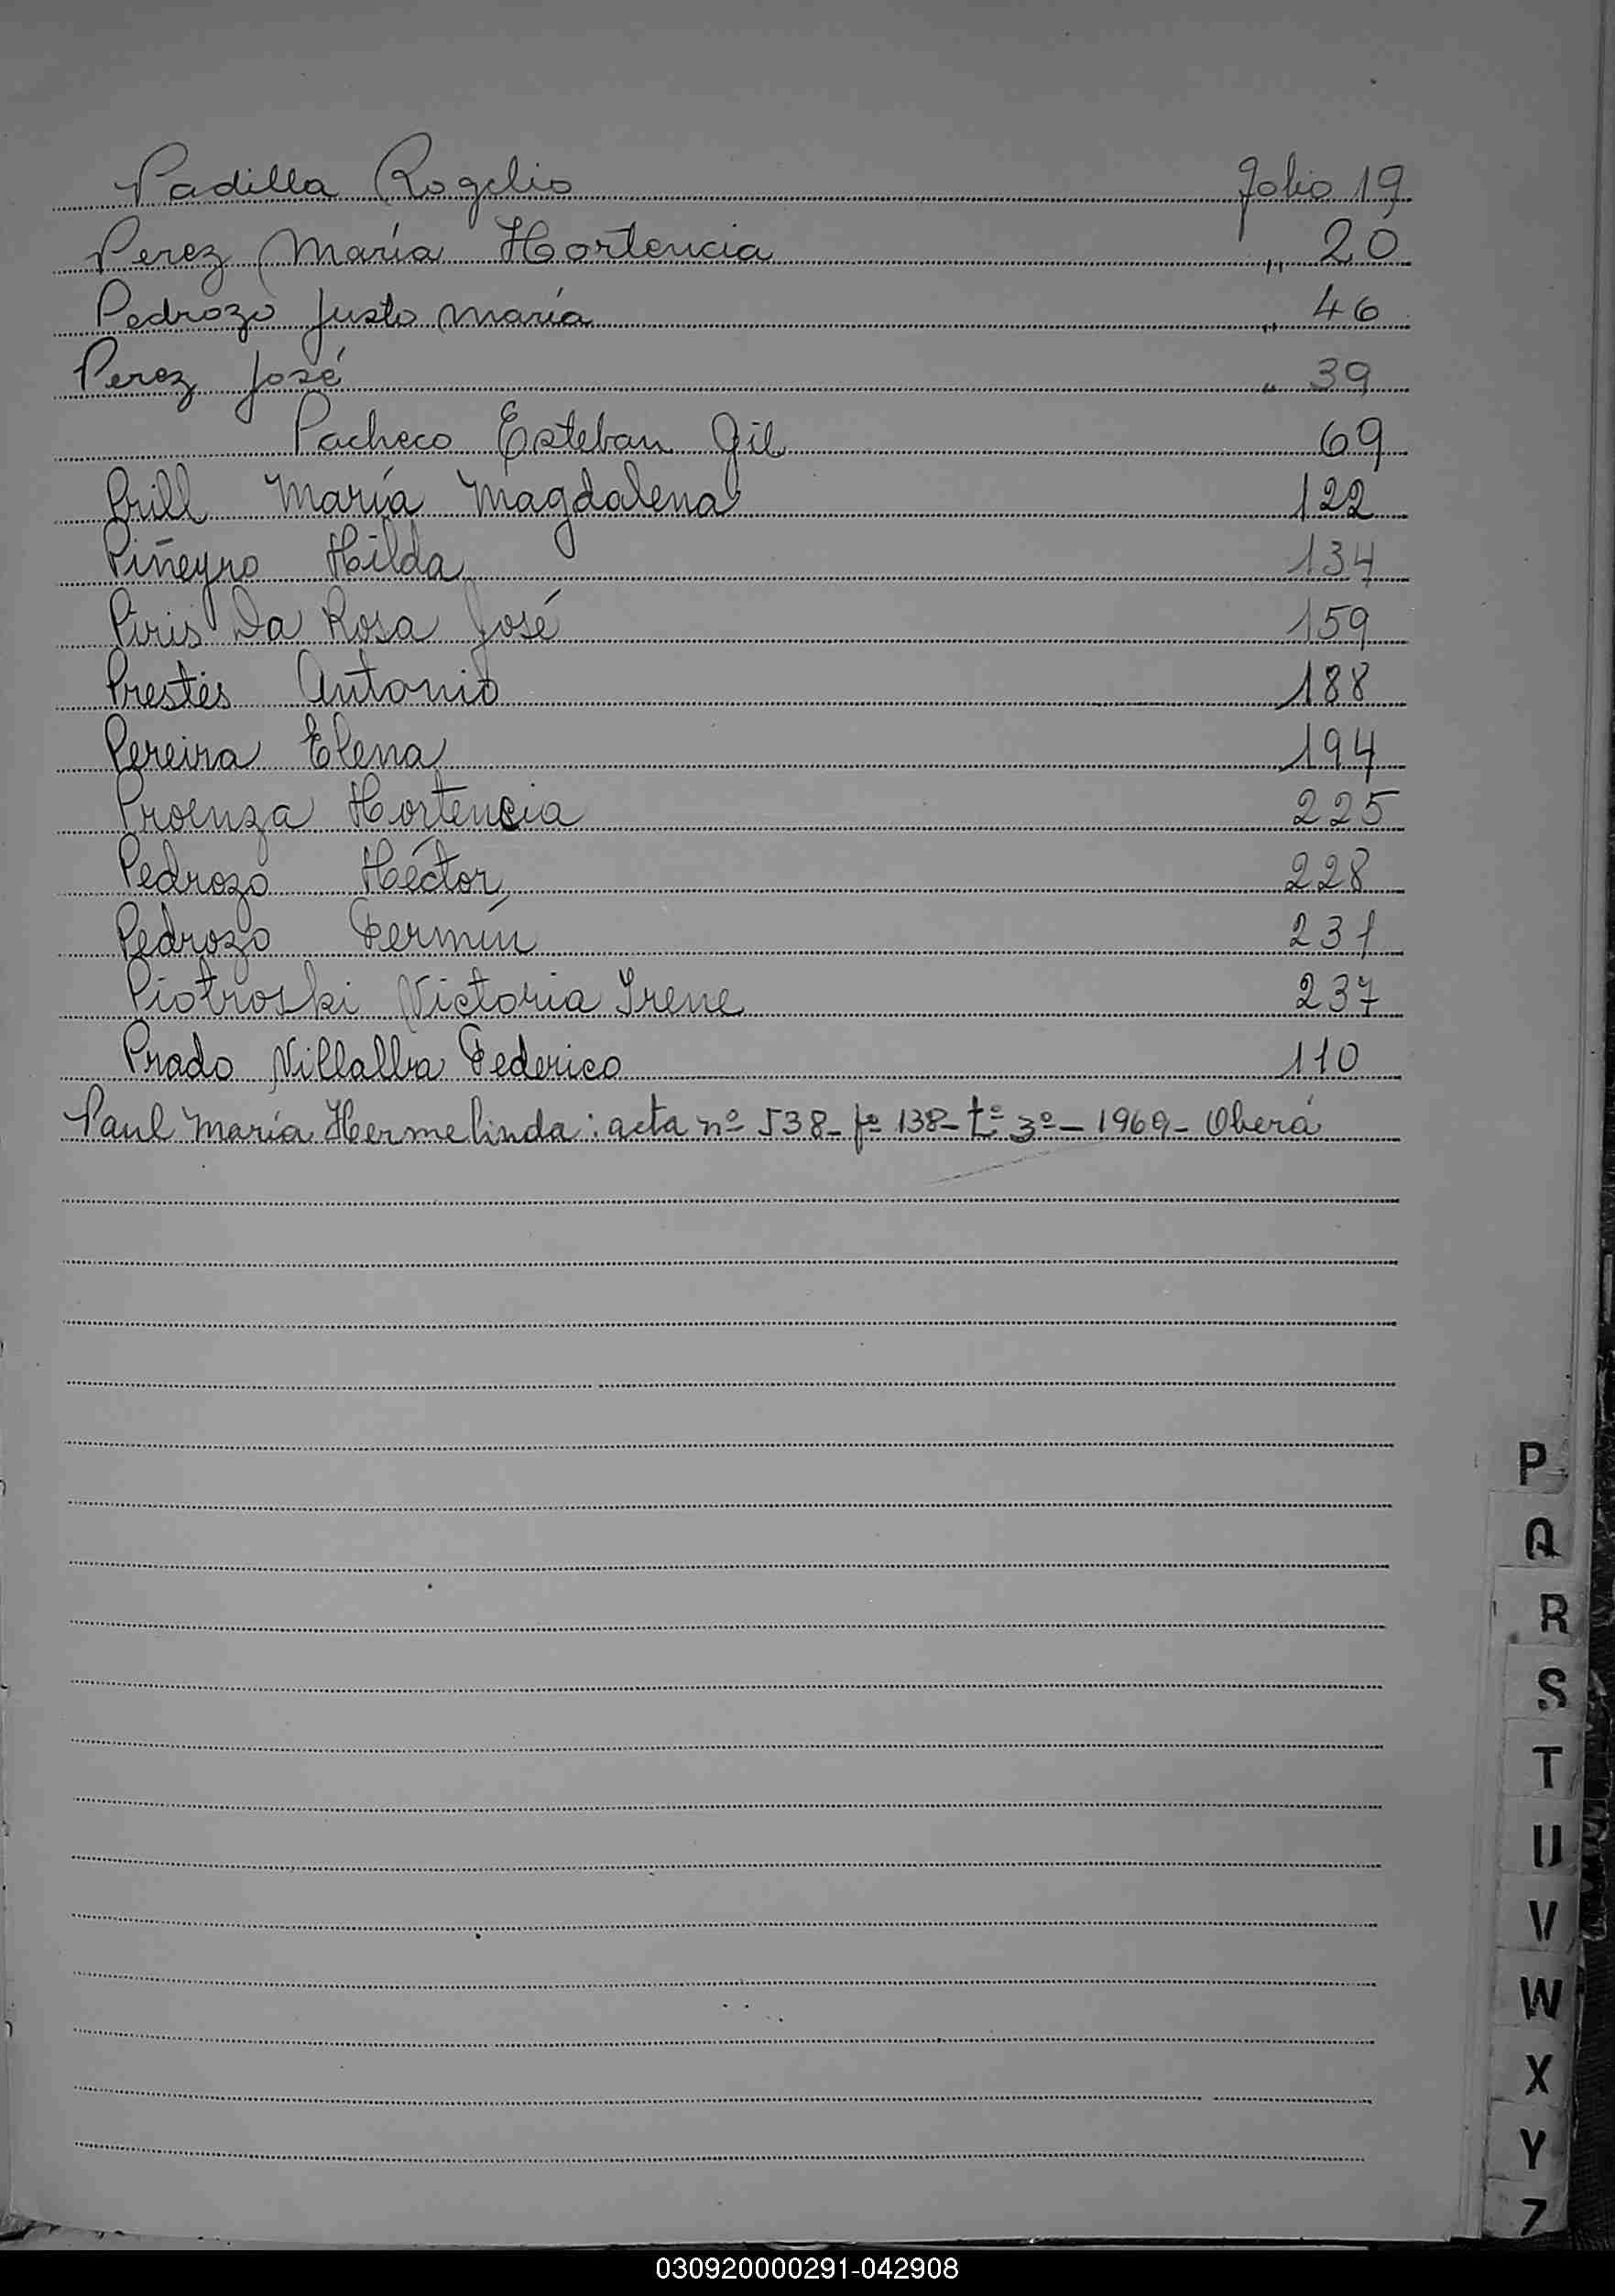 Padilla Rogelio Folio 19
Perez María Hortencia ,, 20
Pedrozo Justo María ,, 46
Perez José ,, 39
Pacheco Esteban Gil 69
Prill María Magdalena 122
Piñeyro Hilda 134
Piris Da Rosa José 159
Prestes Antonio 188
Pereira Elena 194
Proenza Hortencia 225
Pedrozo Héctor 228
Pedrozo Fermín 231
Piotroski Victoria Irene 237
Prado Villalba Federico 110
Paul María Hermelinda: acta nº 538- fº 138- tº 3º- 1969- Oberá
P
Q
R
S
T
U
V
W
X
Y
Z
030920000291-042908